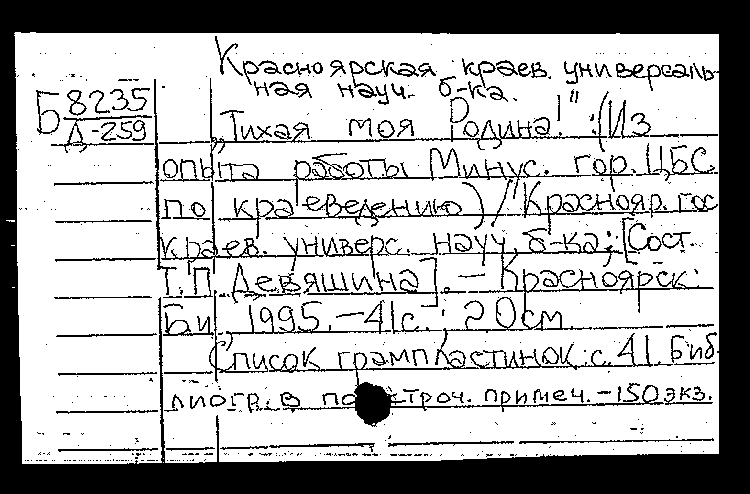 Красноярская краев. универсаль-
ная науч. б-ка.
Б 8235
Д-259
„Тихая моя Родина!" : (Из
опыта работы Минус. гор. ЦБС
по краеведению) / Краснояр. гос
краев. универс. науч. б-ка; [Сост.
Т. П. Девяшина]. – Красноярск:
Б.и, 1995. – 41 с.; 20 см.
Список грампластинок: с. 41. Биб-
лиогр. в подстроч. примеч. – 150 экз.